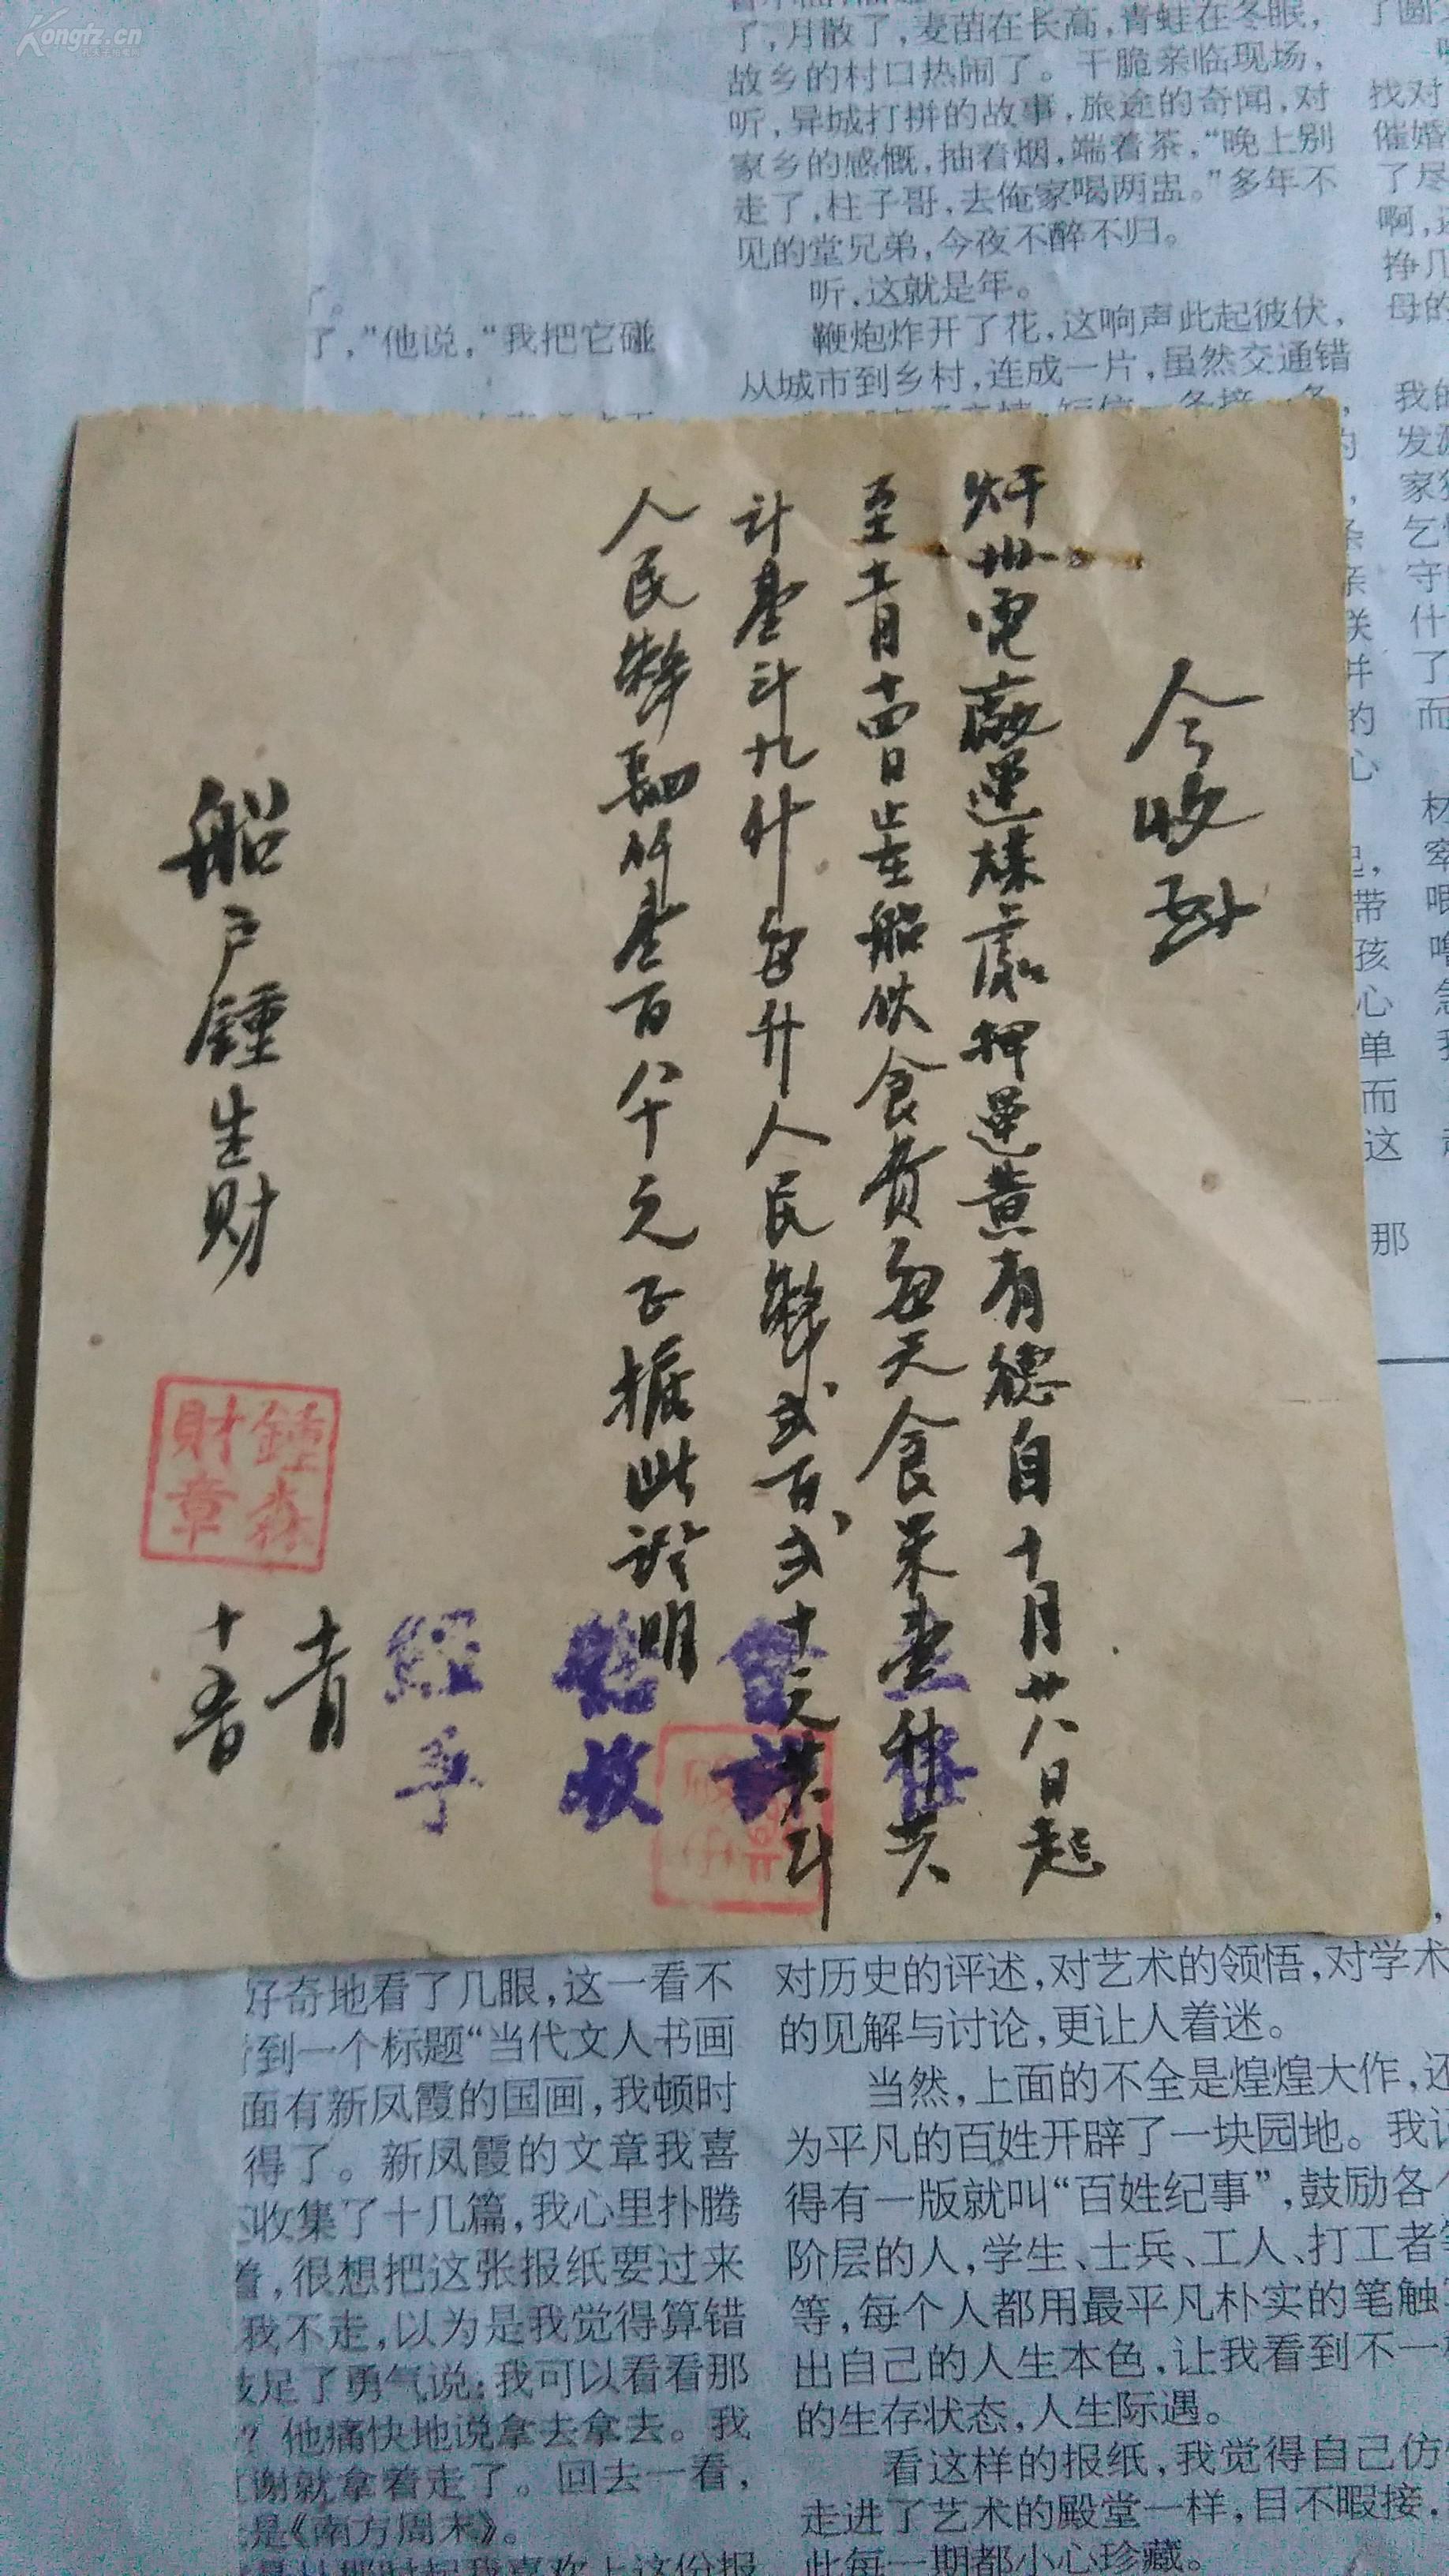 Kongfz.cn
了，月散了，麦苗在长高，青蛙在冬眠，
故乡的村口热闹了。干脆亲临现场，
听，异城打拼的故事，旅途的奇闻，对
家乡的感慨，抽着烟，端着茶，“晚上别
走了，柱子哥，去俺家喝两盅。”多年不
见的堂兄弟，今夜不醉不归。
听，这就是年。
鞭炮炸开了花，这响声此起彼伏，
从城市到乡村，连成一片，虽然交通错
了。
了，”他说，“我把它碰
找对
催婚
了尽
母的
今收到
電廠運煤處押運黄有德自十月廿八日起
至十一月十四日止在船伙食費每天食米壹升共
计壹斗九升每升人民幣弍百弍十元共計
人民幣肆仟壹百八十元正據此證明
船户鍾生财
鍾森財章
十一月
十五日
經手
驗收
會計
對历史的评述，对艺术的领悟，对学术
的见解与讨论，更让人着迷。
当然，上面的不全是煌煌大作，还
为平凡的百姓开辟了一块园地。我记
得有一版就叫“百姓纪事”，鼓励各个
阶层的人，学生、士兵、工人、打工者等
等，每个人都用最平凡朴实的笔触
出自己的人生本色，让我看到不一
的生存状态，人生际遇。
看这样的报纸，我觉得自己仿
走进了艺术的殿堂一样，目不暇接，
此每一期都小心珍藏。
好奇地看了几眼，这一看不
到一个标题“当代文人书画
面有新凤霞的国画，我顿时
得了。新凤霞的文章我喜
收集了十几篇，我心里扑腾
，很想把这张报纸要过来
我不走，以为是我觉得算错
足了勇气说：我可以看看那
？他痛快地说拿去拿去。我
谢就拿着走了。回去一看，
是《南方周末》。